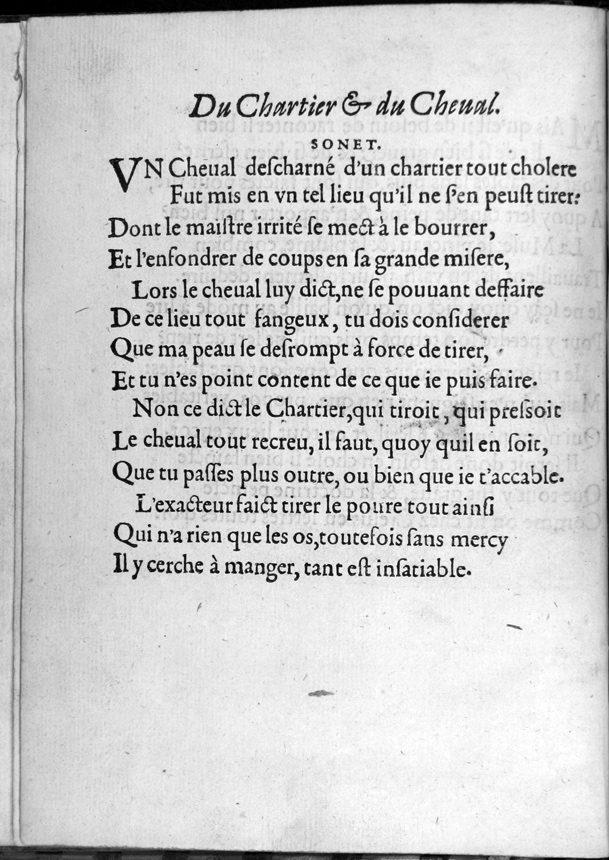 Du Chartier & du Cheual.
SONET.
VN Cheual deſcharné d'vn chartier tout cholere
Fut mis en vn tel lieu qu'il ne ſ'en peuſt tirer:
Dont le maiſtre irrité ſe mect à le bourrer,
Et l'enfondrer de coups en ſa grande miſere,
Lors le cheual luy dict, ne ſe pouuant deffaire
De ce lieu tout fangeux, tu dois conſiderer
Que ma peau ſe deſrompt à force de tirer,
Et tu n'es point content de ce que ie puis faire.
Non ce dict le Chartier, qui tiroit, qui preſſoit
Le cheual tout recreu, il faut, quoy quil en ſoit,
Que tu paſſes plus outre, ou bien que ie t'accable.
L'exacteur faict tirer le poure tout ainſi
Qui n'a rien que les os, toutefois ſans mercy
Il y cerche à manger, tant eſt inſatiable.